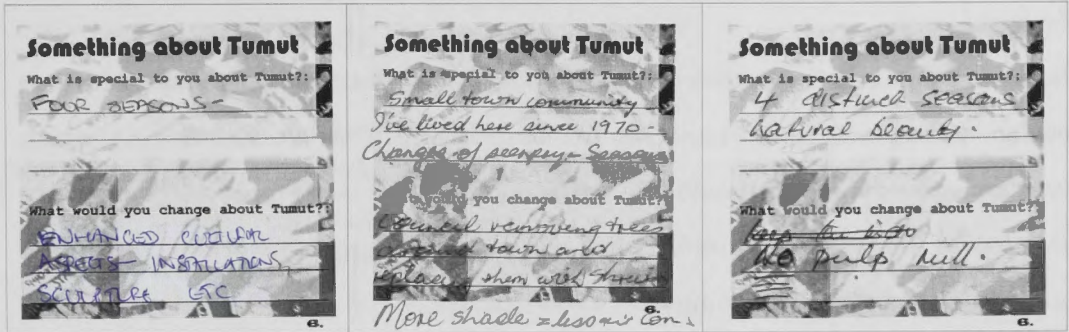 Something about Tumut
What is special to you about Tumut?:
FOUR SEASONS-
What would you change about Tumut?:
ENHANCED CULTURAL
ASPECTS- INSTALLATIONS,
SCULPTURE ETC
6.
Something about Tumut
What is special to you about Tumut?:
Small town community
I've lived here since 1970-
Changes of scenery-
would you change about Tumut?
Council removing trees
around town and
replacing them with shrubs
6.
More shade = less air con.
Something about Tumut
What is special to you about Tumut?:
4 distinct seasons
natural beauty.
What would you change about Tumut?
No pulp mill.
6.